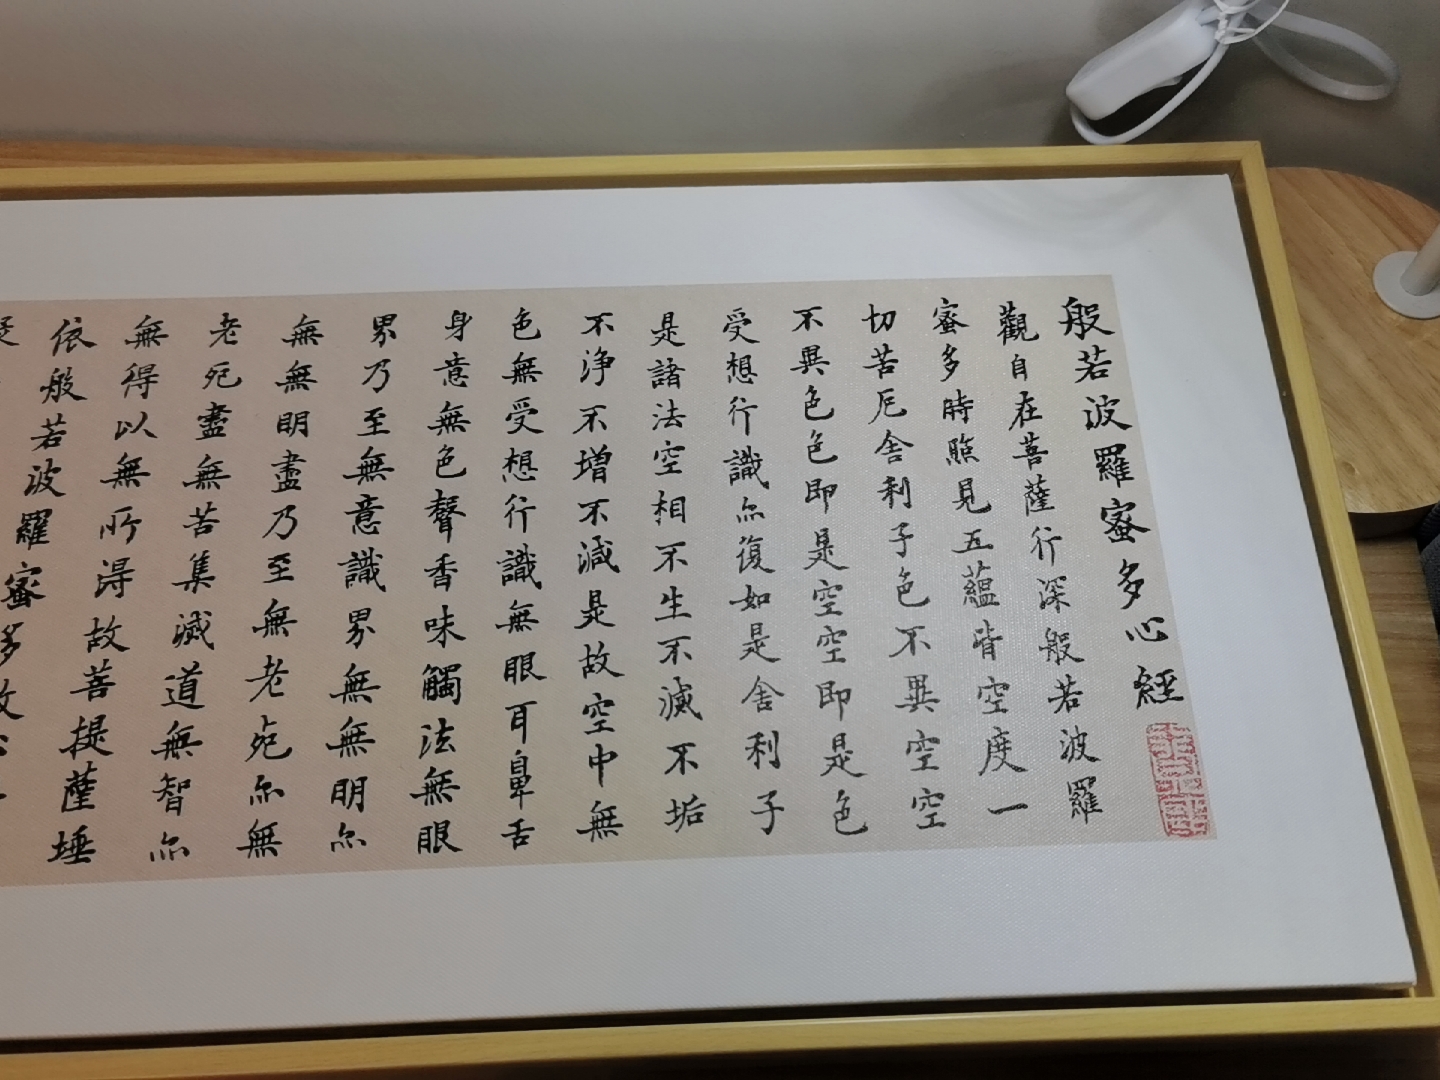 般若波羅蜜多心經
觀自在菩薩行深般若波羅
蜜多時照見五蘊皆空度一
切苦厄舍利子色不異空空
不異色色即是空空即是色
受想行識亦復如是舍利子
是諸法空相不生不滅不垢
不淨不增不減是故空中無
色無受想行識無眼耳鼻舌
身意無色聲香味觸法無眼
界乃至無意識界無無明亦
無無明盡乃至無老死亦無
老死盡無苦集滅道無智亦
無得以無所得故菩提薩埵
依般若波羅蜜多故心